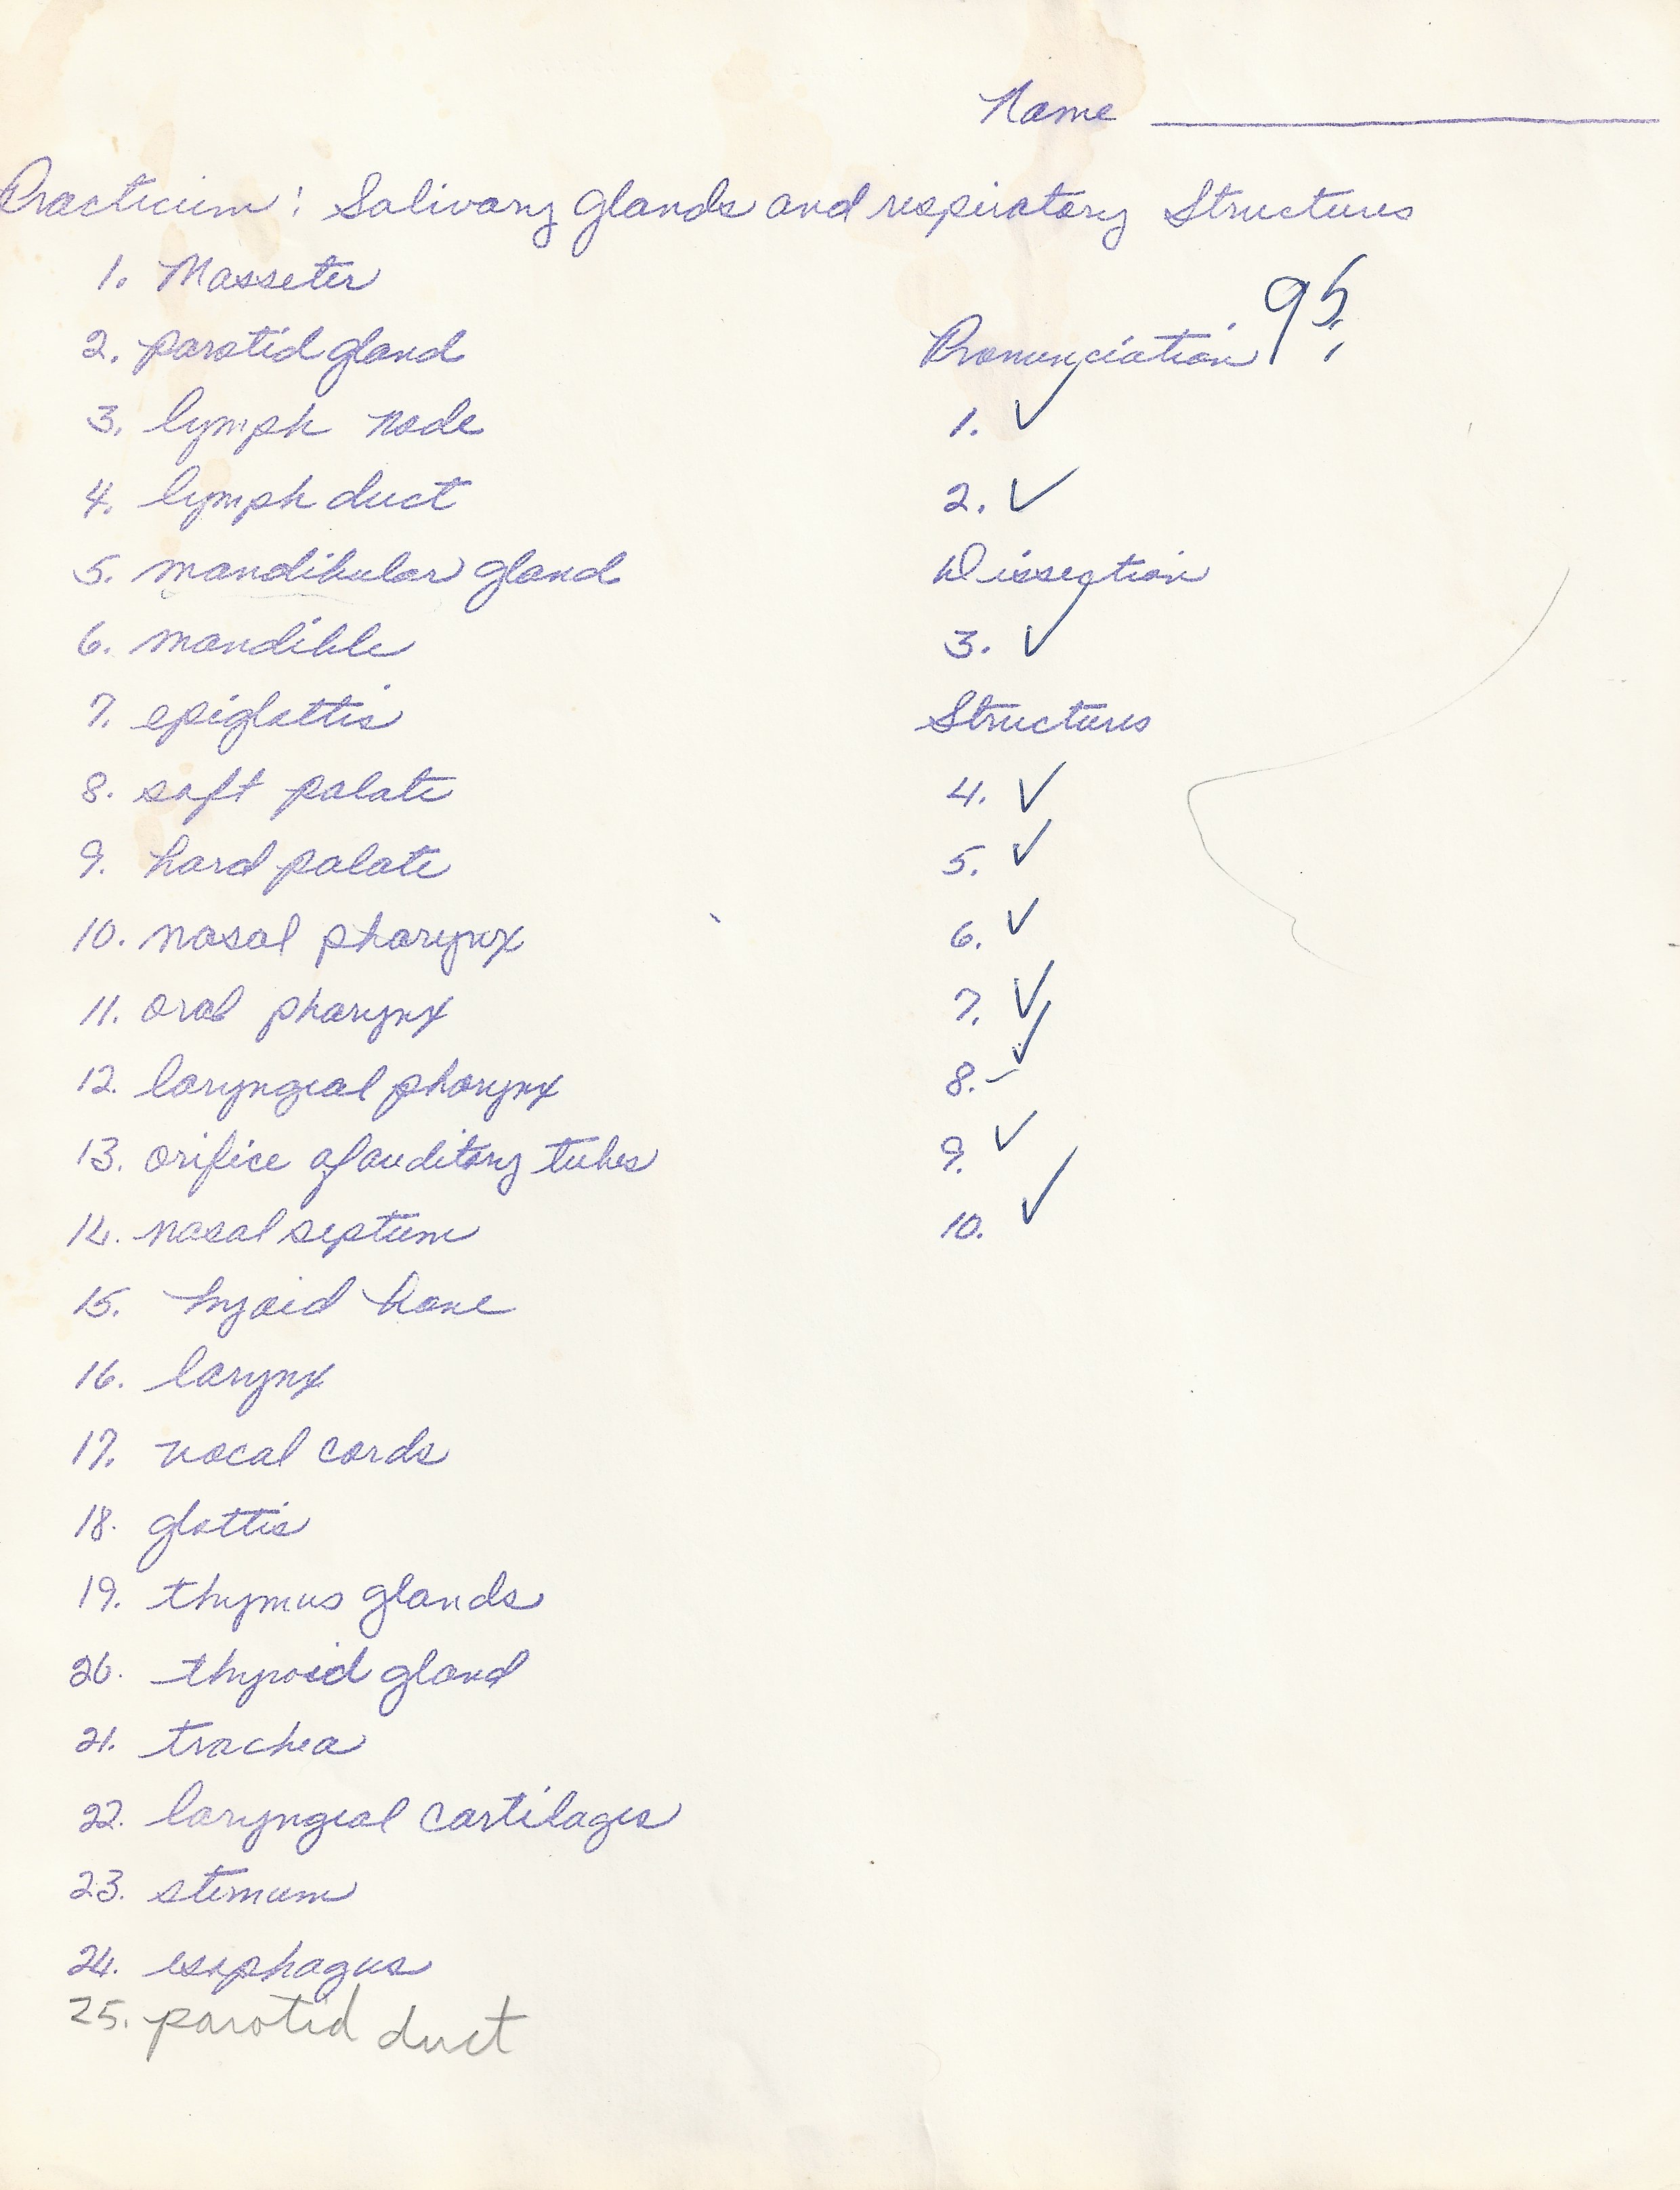 Name
Practicum: Salivary glands and respiratory Structures
1. Masseter
2. parotid gland
3. lymph node
4. lymph duct
5. mandibular gland
6. mandible
7. epiglottis
8. soft palate
9. hard palate
10. nasal pharynx
11. oral pharynx
12. laryngeal pharynx
13. orifice of auditory tubes
14. nasal septum
15. hyoid bone
16. larynx
17. vocal cords
18. glottis
19. thymus glands
20. thyroid gland
21. trachea
22. laryngeal cartilages
23. sternum
24. esophagus
25. parotid duct
95
Pronunciation
1. ✓
2. ✓
Dissection
3. ✓
Structures
4. ✓
5. ✓
6. ✓
7. ✓
8. - ✓
9. ✓
10. ✓